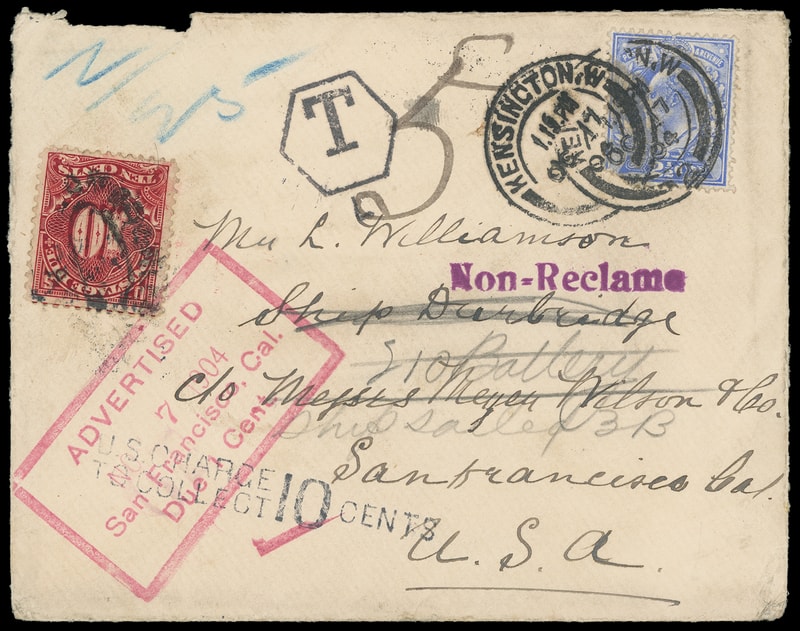 N/25
T
5
KENSINGTON. W
1.15 PM
N.W
TEN CENTS
10
POSTAGE DUE
Mr L. Williamson
Non-Reclame
Ship Durbridge
310 Battery
c/o Messrs Meyer Wilson & Co.
Ship sailed 3B
San Francisco Cal.
U. S. A.
ADVERTISED
7 1904
San Francisco, Cal.
Due 1 Cent
U.S. CHARGE
TO COLLECT 10 CENTS